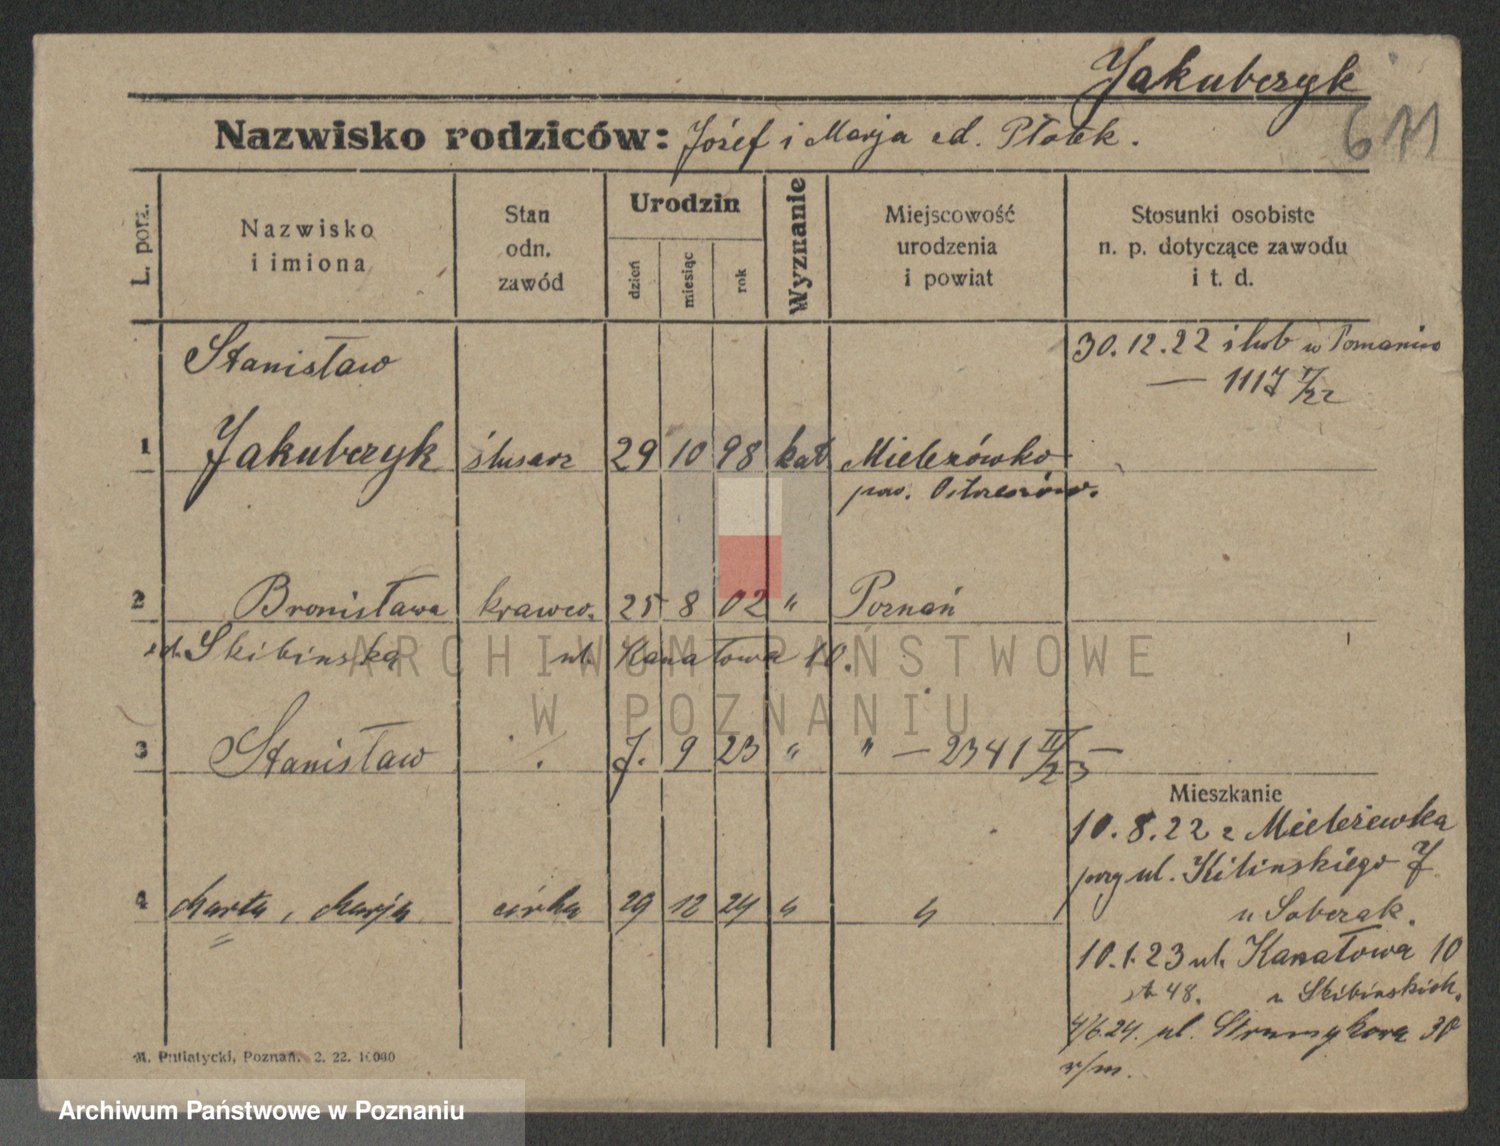 Jakubczyk
Nazwisko rodziców: Józef i Marja zd. Płotek.
611
L. porz.
Nazwisko i imiona
Stan odn. zawód
Urodzin
dzień
miesiąc
rok
Wyznanie
Miejscowość urodzenia i powiat
Stosunki osobiste n. p. dotyczące zawodu i t. d.
30.12.22 ślub w Poznaniu
— 1117 II/22
Stanisław
1 Jakubczyk ślusarz 29 10 98 kat Mielezówko
pow. Ostrzeszów.
2 Bronisława krawco. 25 8 02 " Poznań
zd. Skibińska ul. Kanałowa 10.
3 Stanisław ./. 7. 9 23 " " — 2341 II/23 —
Mieszkanie
10.8.22 z Mieleżewka
przy ul. Kilinskiego 7
u Sobczak.
4 Marta, Marja córka 29 12 24 " "
10.1.23 ul. Kanałowa 10
u Skibinskich.
4/6.24. ul. Strumykowa 30
r/m.
M. Putiatycki, Poznań. 2. 22. 10000
ARCHIWUM PAŃSTWOWE
W POZNANIU
Archiwum Państwowe w Poznaniu